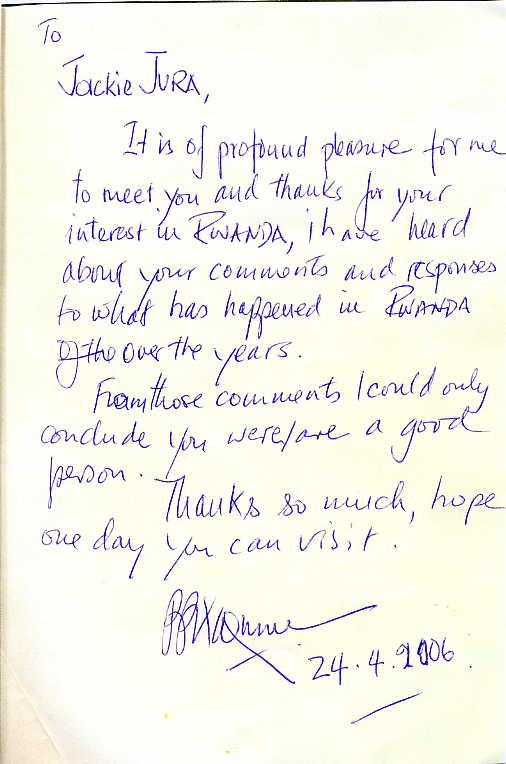 To
Jackie JURA,
It is of profound pleasure for me
to meet you and thanks for your
interest in RWANDA, i have heard
about your comments and responses
to what has happened in RWANDA
Of tho over the years.
From those comments I could only
conclude you were/are a good
person.
Thanks so much, hope
one day you can visit.
24.4.2006.